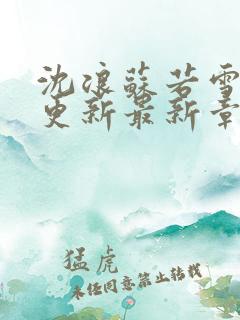 沈浪蘇若雪
更新最新章
猛虎
未经同意禁止转载